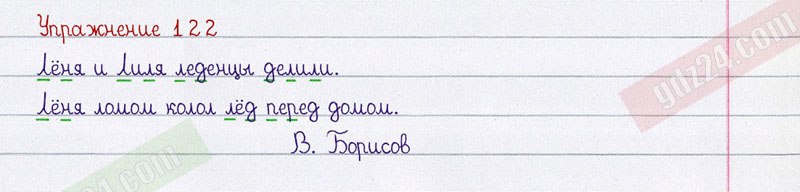 Упражнение 122
Лёня и Лиля леденцы делили.
Лёня ломом колол лёд перед домом.
В. Борисов
gdz24.com
z24.com